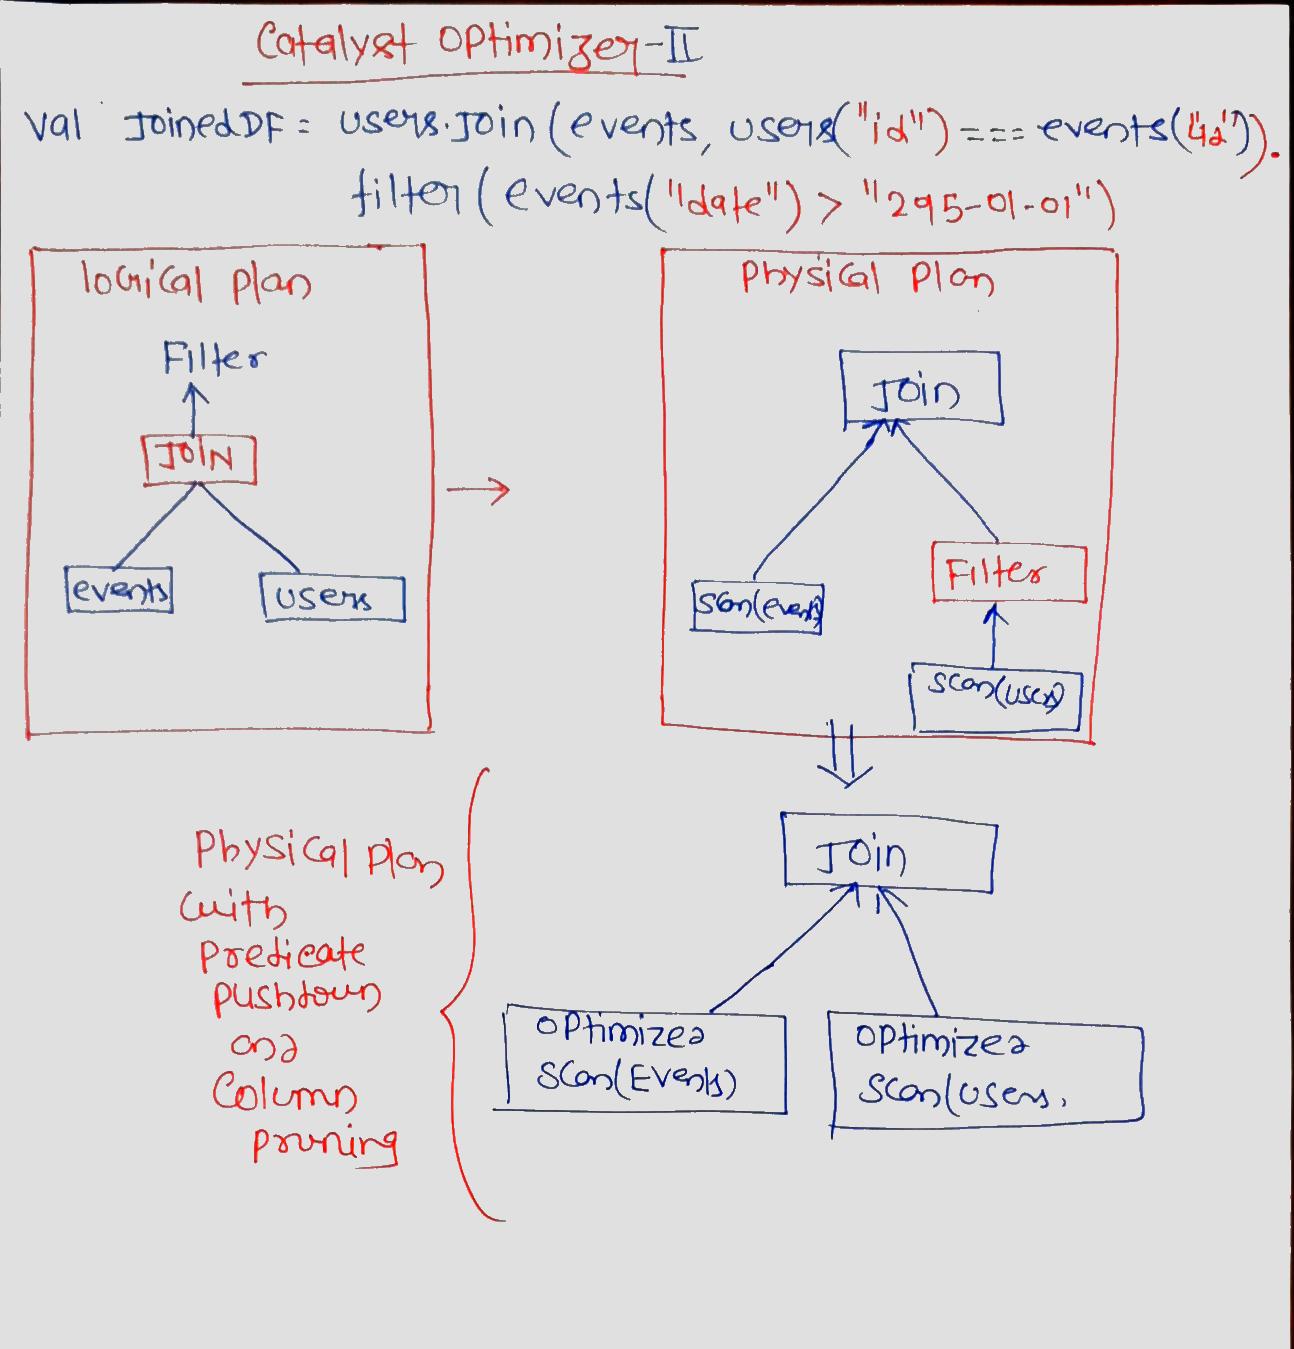 Catalyst Optimizer-II
val JoinedDF = users.Join(events, users("id") === events("id")).
filter(events("date") > "295-01-01")
logical plan
Filter
JOIN
events
users
Physical Plan
Join
scan(events)
Filter
scan(users)
Join
Physical plan
with
predicate
pushdown
and
Column
pruning
Optimized
Scan(Events)
Optimized
Scan(Users,